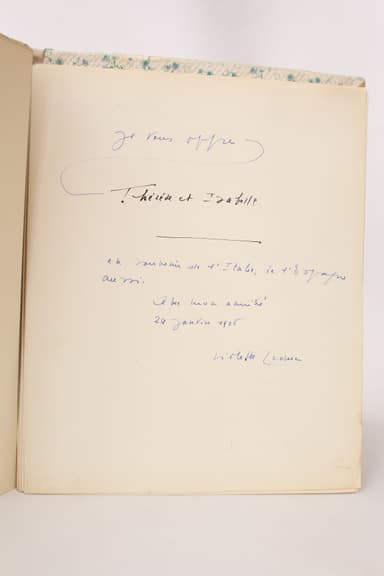 Je vous offre
Thérèse et Isabelle
en souvenir de l'Italie, de l'Espagne
aussi.
Avec mon amitié
24 janvier
Violette Leduc